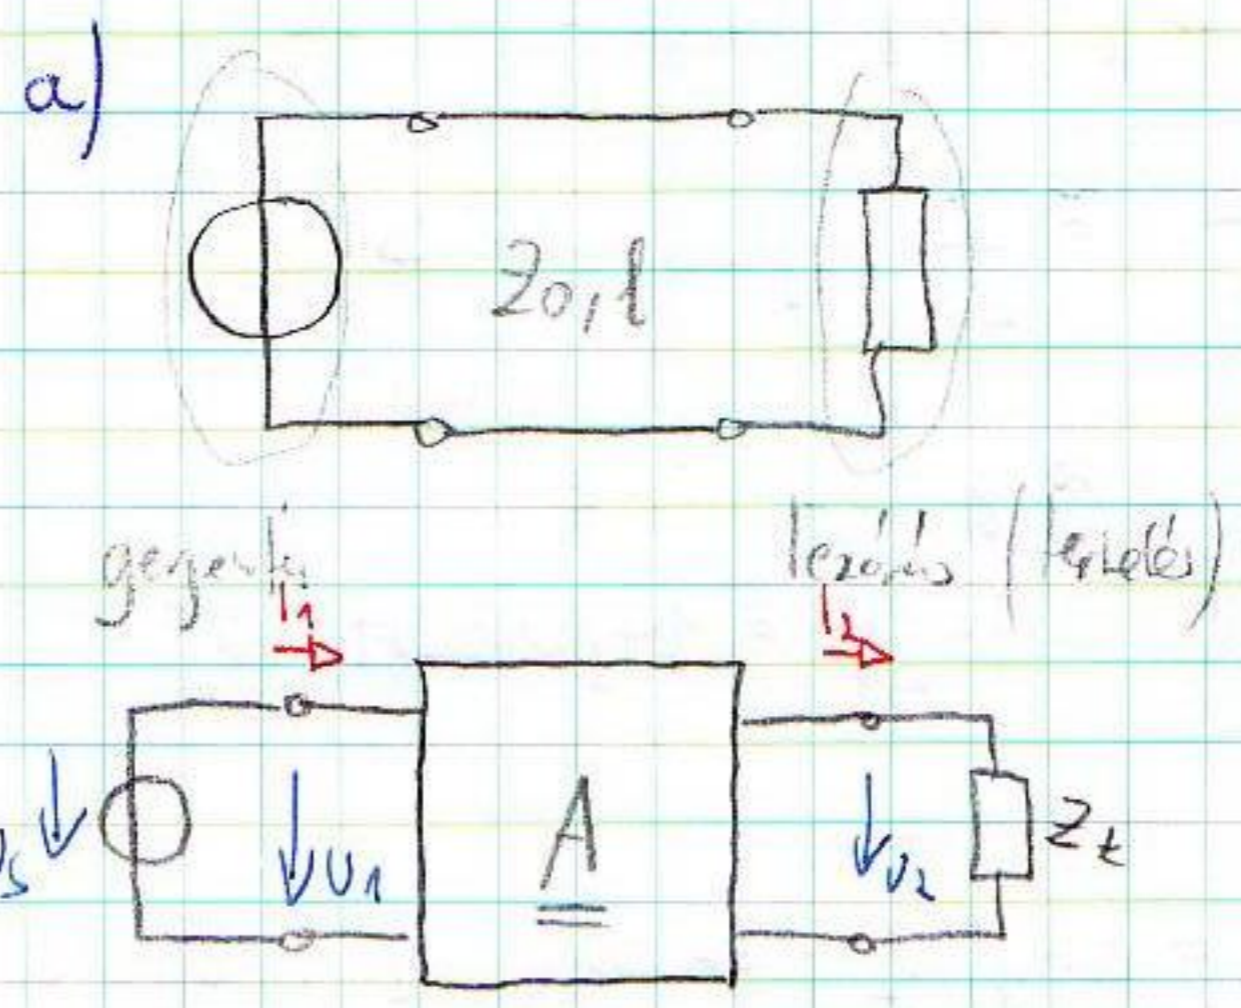 a)
Z0, l
gerjesztés
lezárás (terhelés)
I1
I2
Us
U1
A
U2
Zt